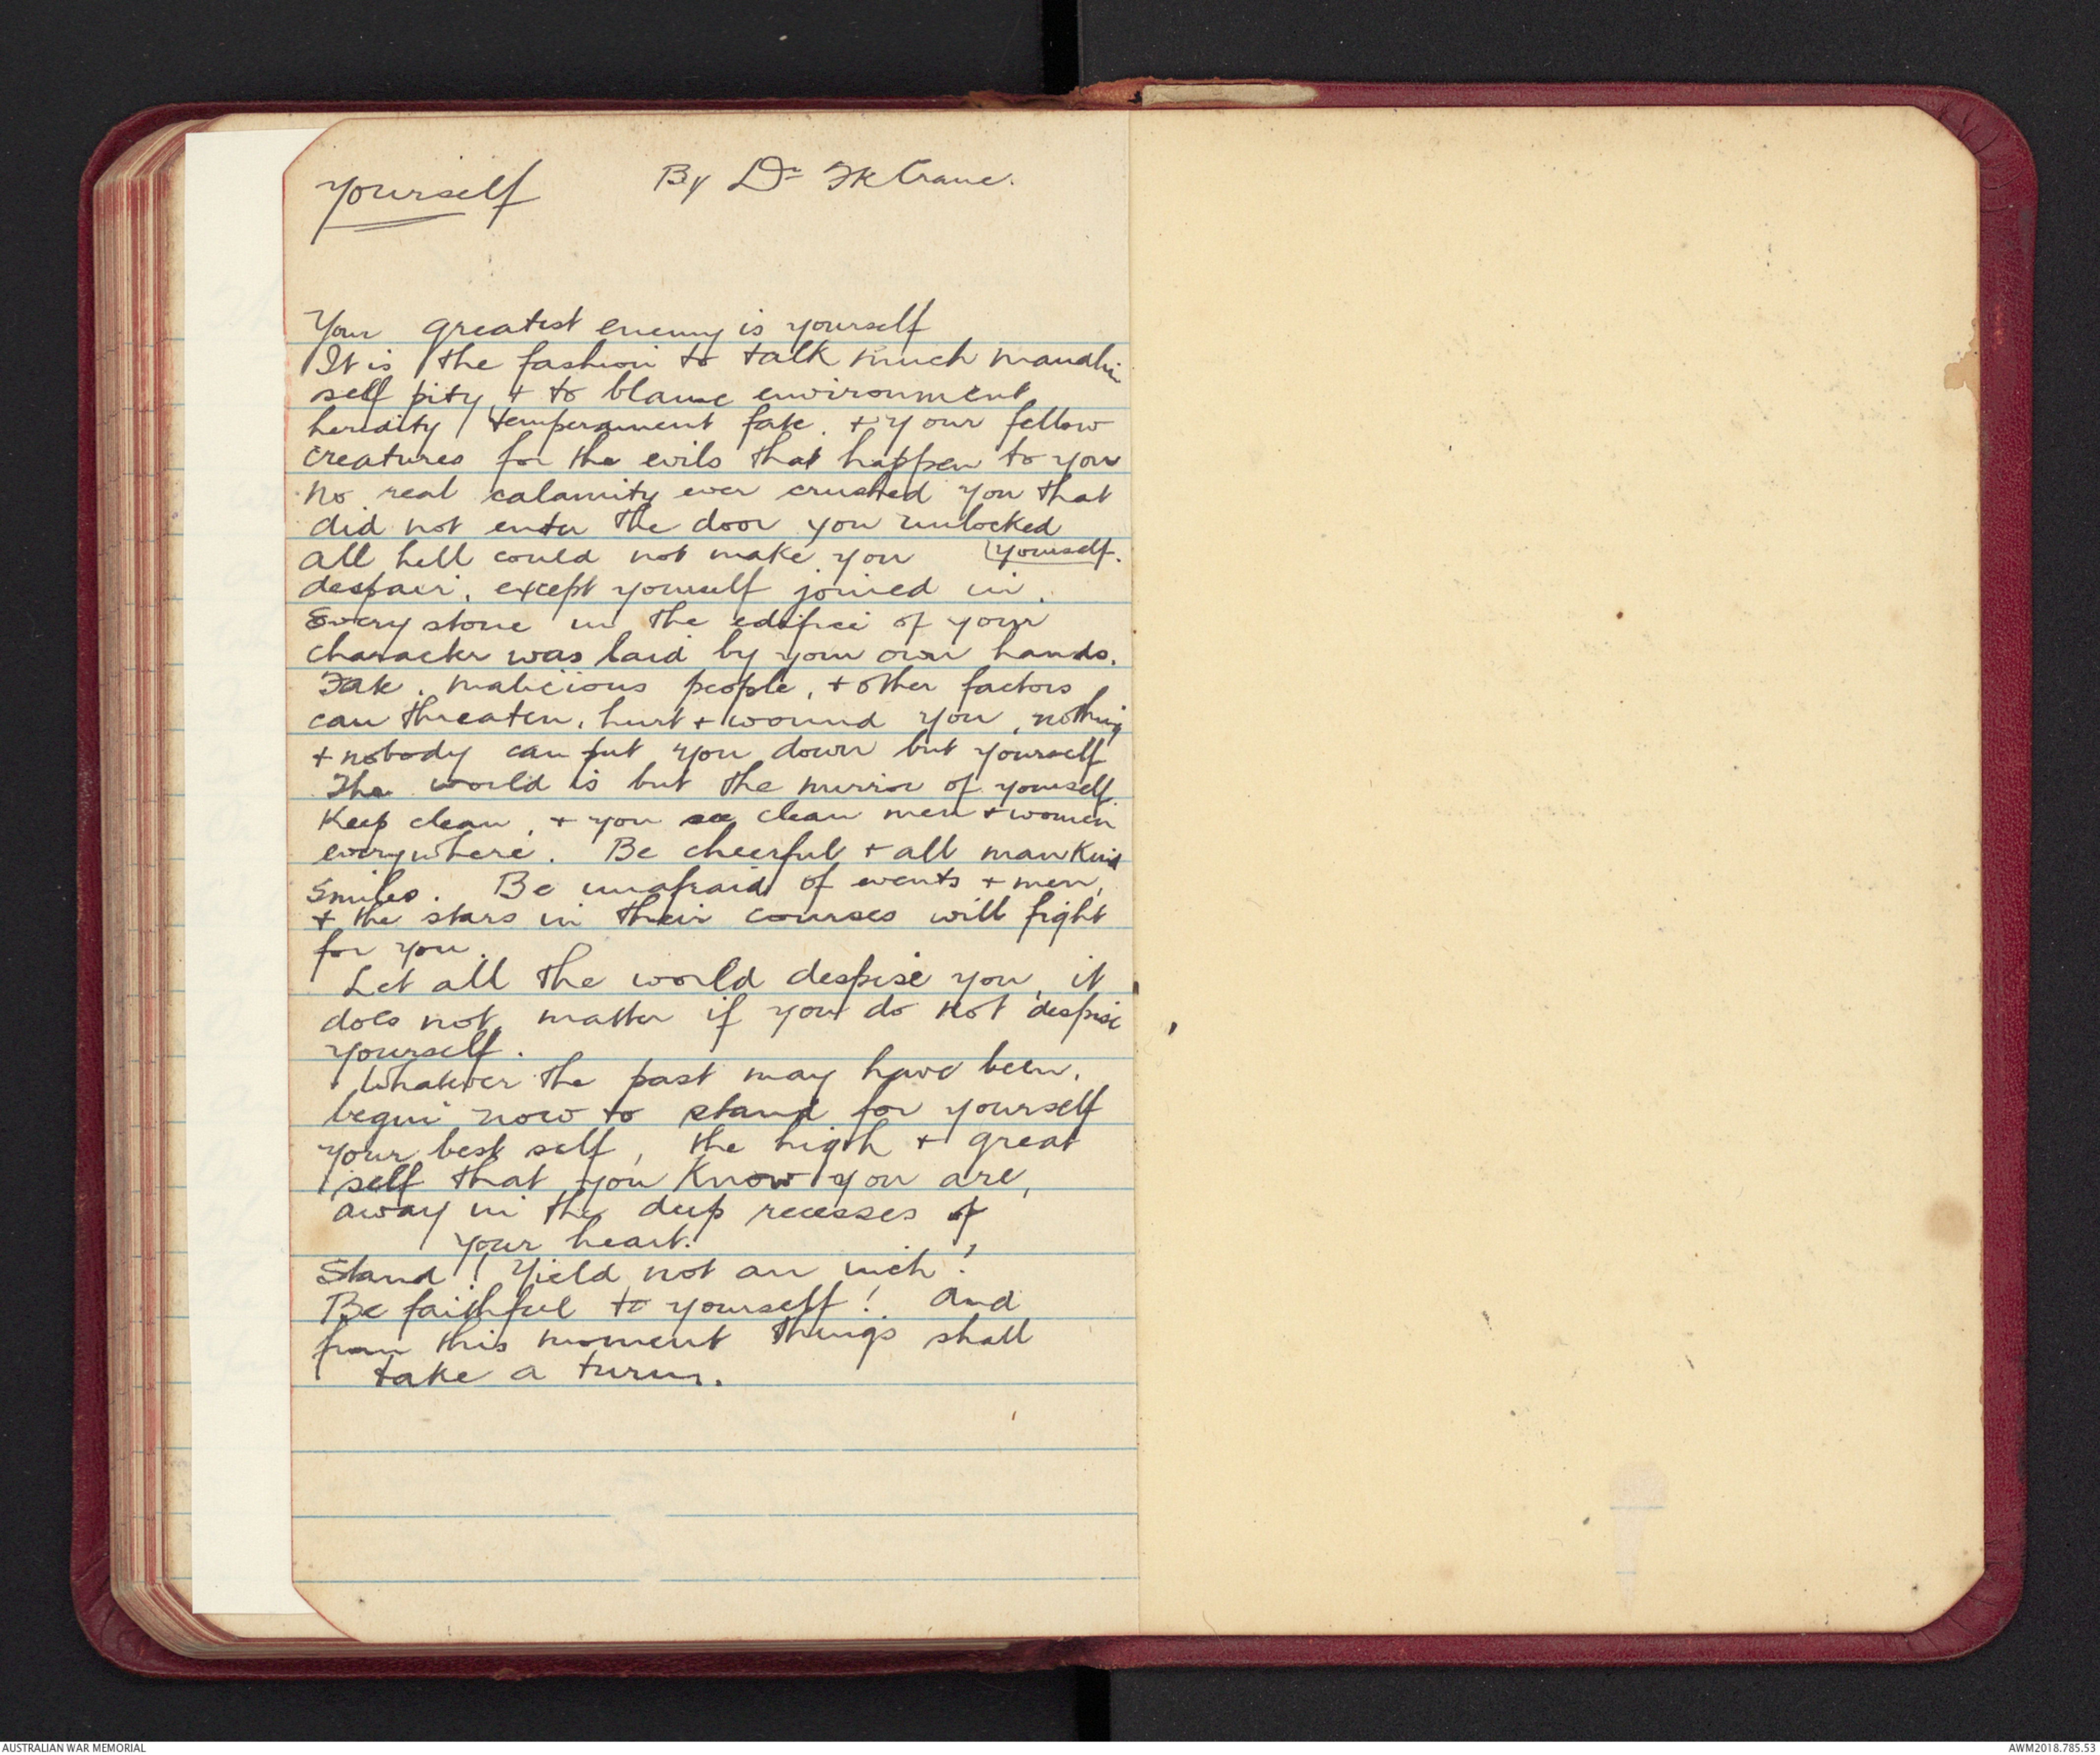 Yourself By Dr Fk Crane.
Your greatest enemy is yourself
It is the fashion to talk much maudlin
self pity, + to blame environment,
heredity, temperament fate. + your fellow
creatures for the evils that happen to you
No real calamity ever crushed you that
did not enter the door you unlocked
All hell could not make you (yourself.
despair, except yourself joined in.
Every stone in the edifice of your
character was laid by your own hands.
Fate, malicious people, + other factors
can threaten, hurt + wound you, nothing
+ nobody can put you down but yourself
The world is but the mirror of yourself.
Keep clean, + you see clean men + women
everywhere. Be cheerful + all mankind
smiles. Be unafraid of events + men,
+ the stars in their courses will fight
for you.
Let all the world despise you, it
does not matter if you do not despise
yourself.
Whatever the past may have been,
begin now to stand for yourself
your best self, the high + great
self that you know you are,
away in the deep recesses of
your heart.
Stand! Yield not an inch!
Be faithful to yourself! And
from this moment things shall
take a turn.
AUSTRALIAN WAR MEMORIAL
AWM2018.785.53